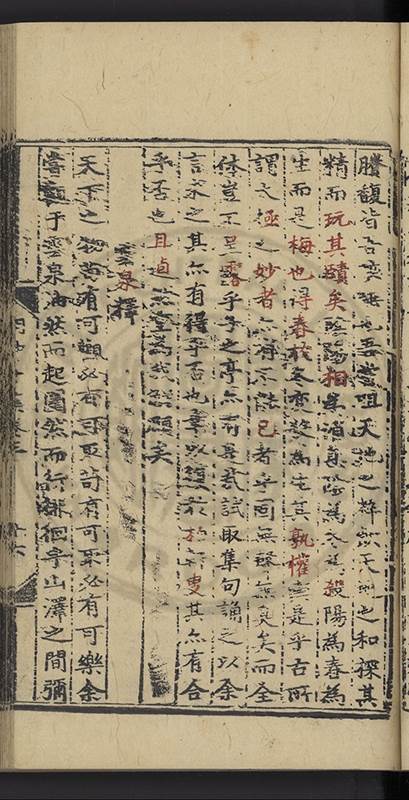 膾馥皆吾糞壤也吾嘗咀天地之粹飲天地之和探其
精而玩其賾矣陰陽相為消息陰為冬為殺陽為春為
生而是梅也得春於冬變殺為生其孰權是乎古所
謂之極之妙者亦有不能已者乎固無聲無臭矣而全
體豈不呈露乎子之亭亦試取集句誦之以余
言求之其亦有得乎否也韋以復於叟其亦有合
乎否也且道
雲泉擇
天下之物苟有可觀必有可取苟有可取必有可樂余
嘗觀于雲泉油然而起圖然而行徘徊乎山澤之間彌